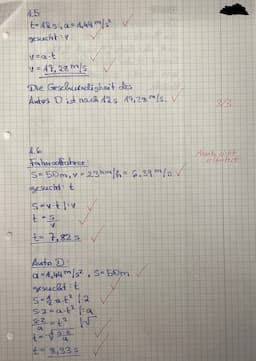 1.5
t=12s, a=1,44 m/s²
gesucht: v
v=a·t
v= 17,28 m/s
Die Geschwindigkeit des
Autos D ist nach 12s 17,28 m/s.
3/3
1.6
Fahrradfahrer:
S=50m, v=23 km/h = 6,39 m/s
gesucht: t
S=v·t |:v
t=S/v
t= 7,82s
Auto D:
a=1,44 m/s², S=50m
gesucht: t
S=1/2·a·t² |·2
S·2=a·t² |:a
S·2/a=t² |√
t=√S·2/a
t= 8,33s